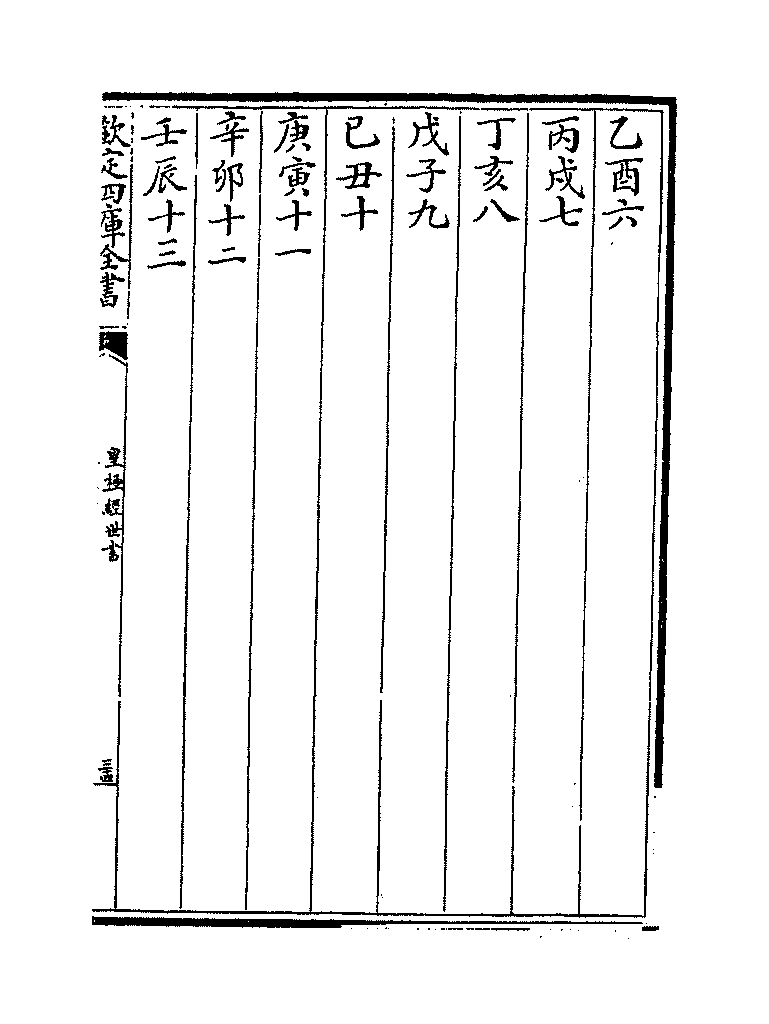 乙酉六
丙戌七
丁亥八
戊子九
己丑十
庚寅十一
辛卯十二
壬辰十三
欽定四庫全書
皇極經世書